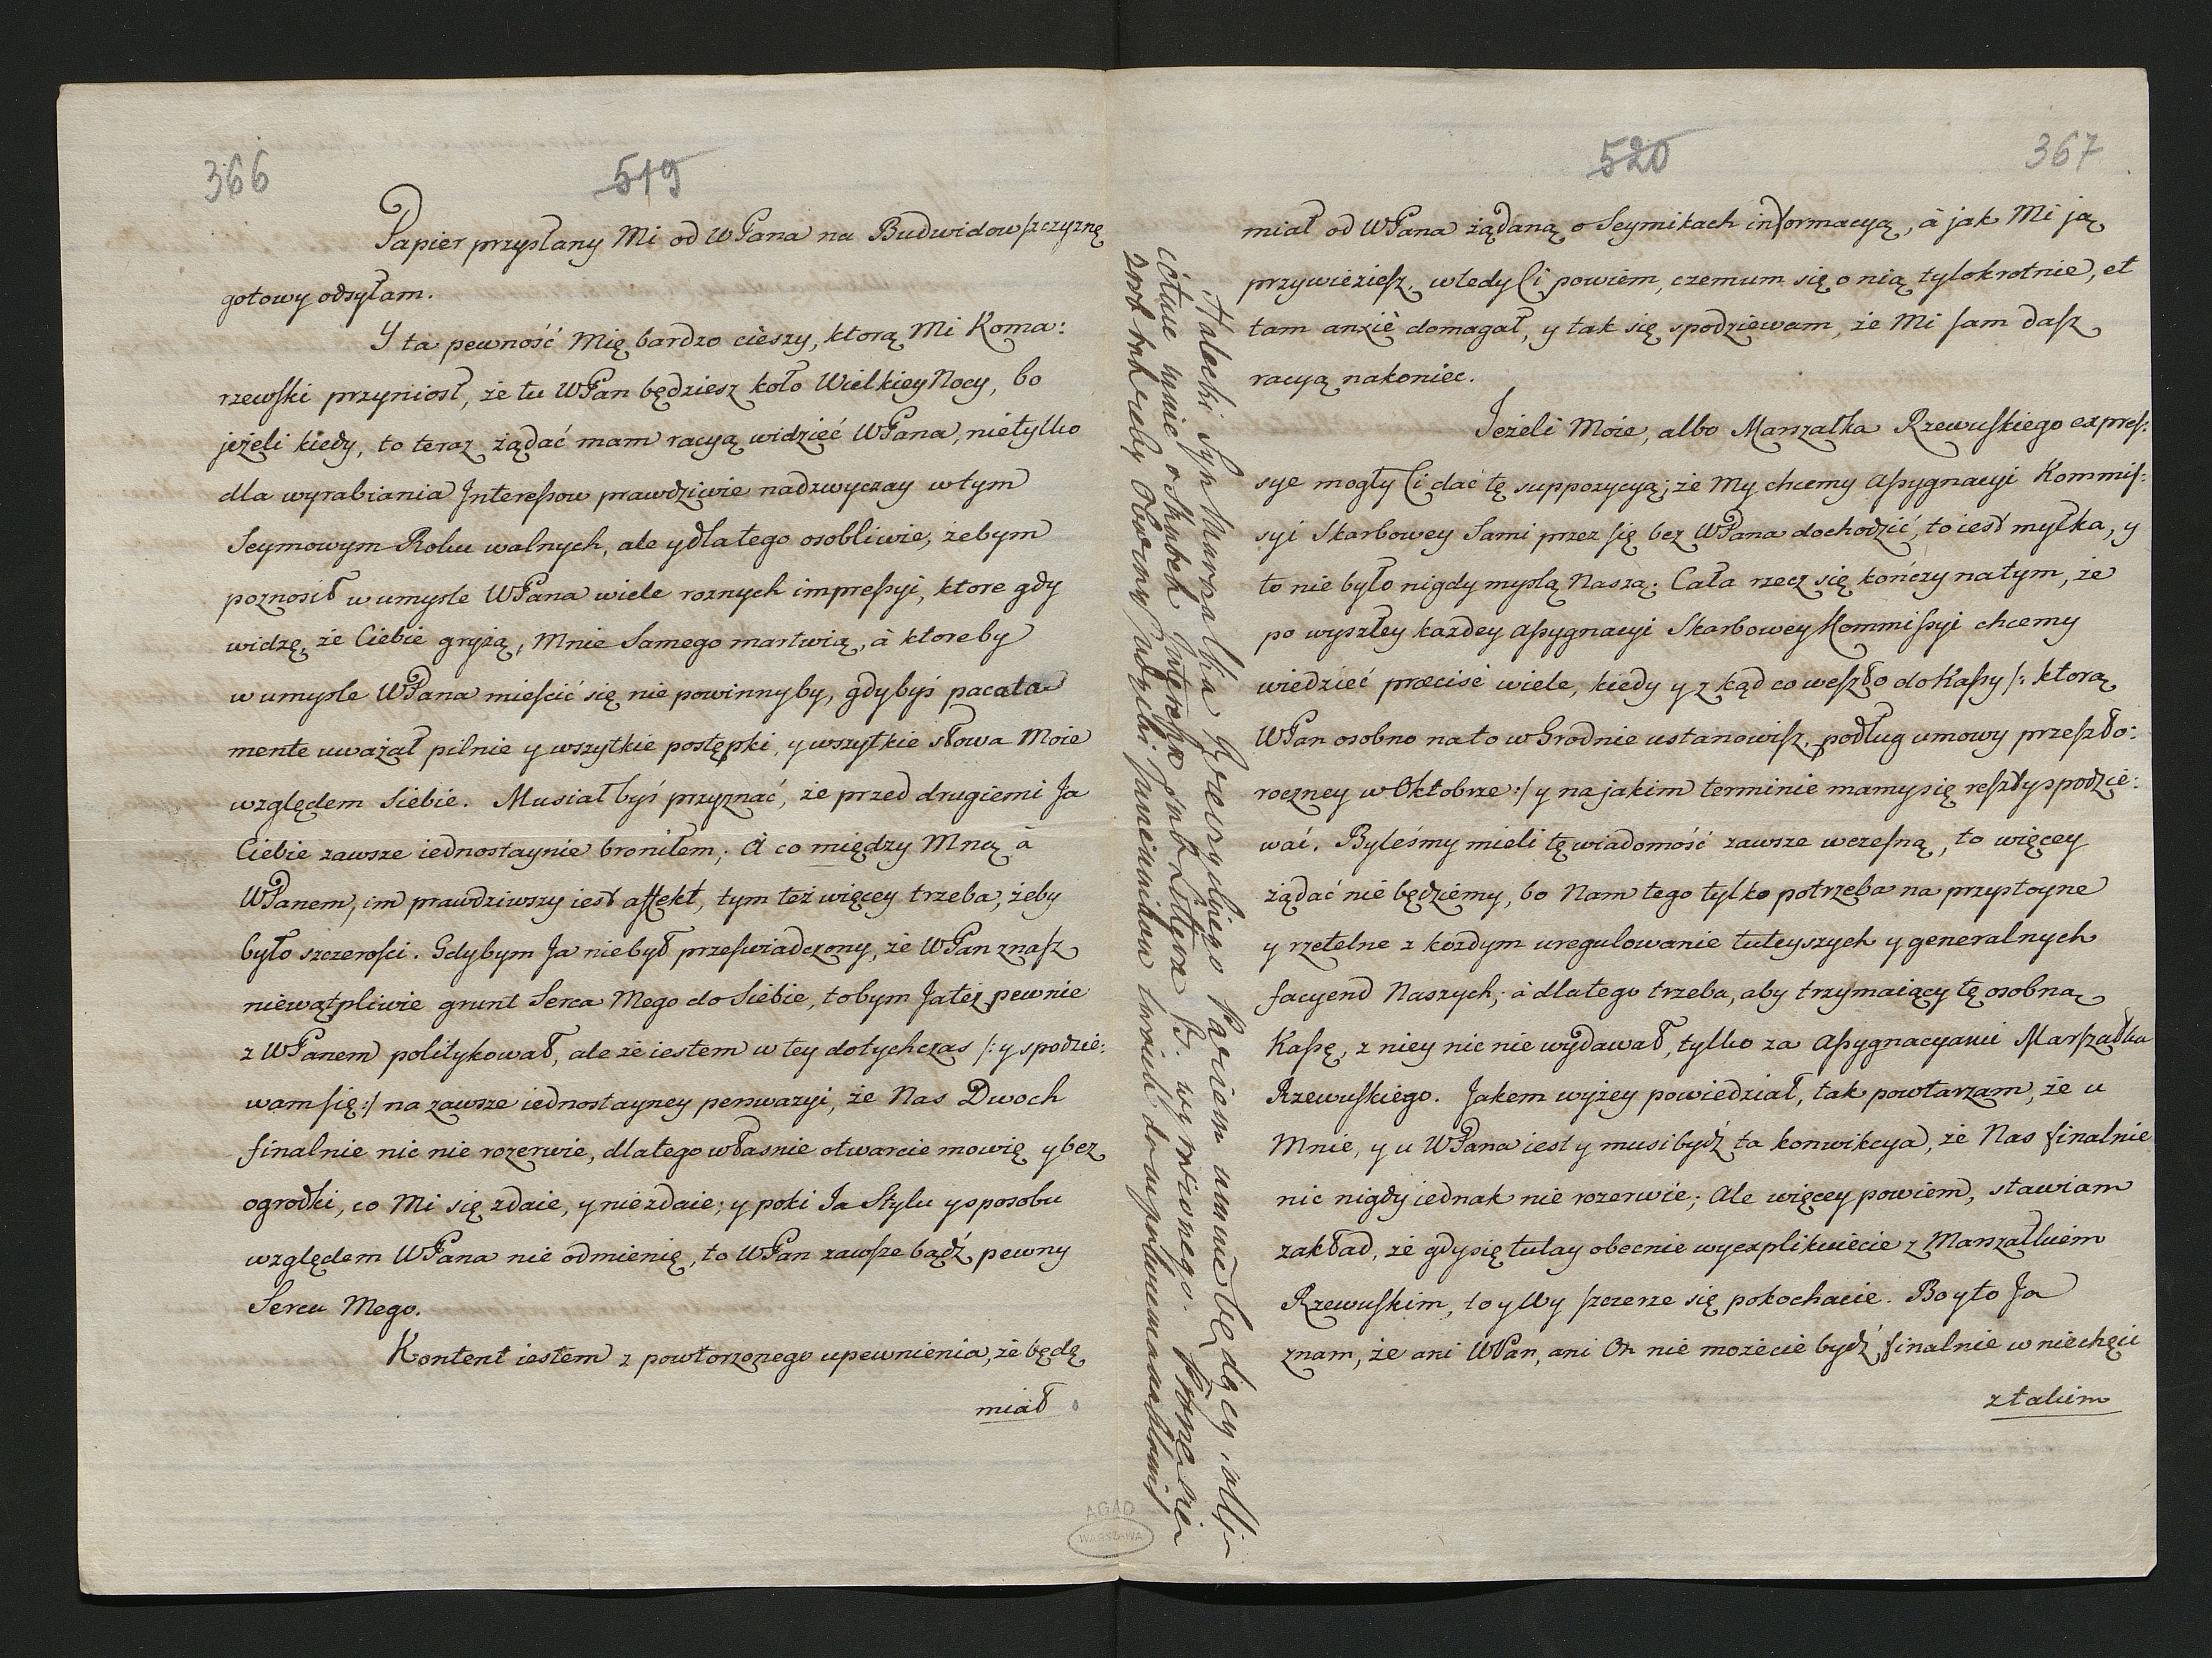 366
519
Papier przysłany Mi od WPana na Budwidowszczyznę
gotowy odsyłam.
Y ta pewność Mię bardzo cieszy, ktorą Mi Koma:
rzewski przyniosł, że tu WPan będziesz koło Wielkiey Nocy, bo
jeżeli kiedy, to teraz żądać mam racyą widzieć WPana, nietylko
dla wyrabiania Interessow prawdziwie nadzwyczay w tym
Seymowym Roku walnych, ale y dlatego osobliwie, żebym
poznosił w umyśle WPana wiele roznych impressyi, ktore gdy
widzę, że Ciebie gryzą, Mnie Samego martwią, à ktoreby
w umysle WPana mieścić się nie powinnyby, gdybyś pacata
mente uważał pilnie y wszytkie postępki, y wszytkie słowa Moie
względem Siebie. Musiałbyś przyznać, że przed drugiemi Ja
Ciebie zawsze iednostaynie broniłem; A co między Mną à
WPanem, im prawdziwszy iest affekt, tym też więcey trzeba, żeby
było szczerości. Gdybym Ja nie był przeświadczony, że WPan znasz
niewątpliwie grunt Serca Mego do Siebie, tobym Ja też pewnie
z WPanem politykował, ale że iestem w tey dotychczas /: y spodzie:
wam się :/ na zawsze iednostayney perswazyi, że Nas Dwoch
finalnie nic nie rozerwie, dlatego własnie otwarcie mowię y bez
ogrodki, co Mi się zdaie, y nie zdaie; y poki Ja Stylu y sposobu
względem WPana nie odmienię, to WPan zawsze bądź pewny
Serca Mego.
Kontent iestem z powtorzonego upewnienia, że będę
miał
Halecki Syn Marszałka
Paziem u mnie będący, obli-
cituie u mnie o skutek
520
367
miał od WPana żądaną o Seymikach informacyą, à jak Mi ją
przywieziesz, wtedy Ci powiem, czemum się o nią tylokrotnie, et
tam anxiè domagał, y tak się spodziewam, że Mi sam dasz
racyą nakoniec.
Jeżeli Moie, albo Marszałka Rzewuskiego expres:
sye mogły Ci dać tę suppozycyą; że My chcemy Assygnacyi Kommis:
syi Skarbowey Sami przez się bez WPana dochodzić, to iest myłka, y
to nie było nigdy myslą Naszą. Cała rzecz się kończy na tym, że
po wyszłey każdey assygnacyi Skarbowey Kommissyi chcemy
wiedzieć præcisè wiele, kiedy y z kąd co weszło do Kassy /: ktorą
WPan osobno na to w Grodnie ustanowisz, podług umowy przeszło:
roczney w Oktobrze :/ y na jakim terminie mamy się reszty spodzie:
wać. Byleśmy mieli tę wiadomość zawsze wczesną, to więcey
żądać nie będziemy, bo Nam tego tylko potrzeba na przystoyne
y rzetelne z każdym uregulowanie tuteyszych y generalnych
facyend Naszych; à dlatego trzeba, aby trzymaiący tę osobną
Kassę, z niey nic nie wydawał, tylko za Assygnacyami Marszałka
Rzewuskiego. Jakem wyżey powiedział, tak powtarzam, że u
Mnie, y u WPana iest y musi bydź ta konwikcya, że Nas finalnie
nic nigdy iednak nie rozerwie; Ale więcey powiem, stawiam
zakład, że gdy się tutay obecnie wyexplikuiecie z Marszałkiem
Rzewuskim, to y Wy szczerze się pokochacie. Bo y to Ja
znam, że ani WPan, ani On nie możecie bydź finalnie w niechęci
z takim
AGAD
WARSZAWA